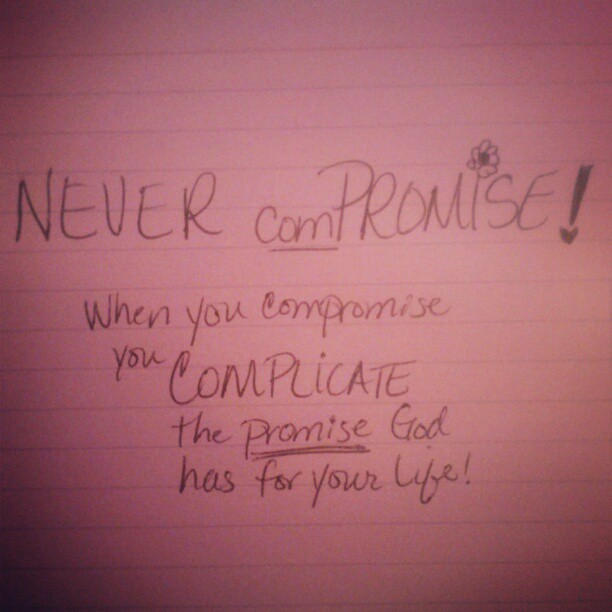 NEVER comPROMiSE!
When you compromise
you COMPLiCATE
the promise God
has for your Life!